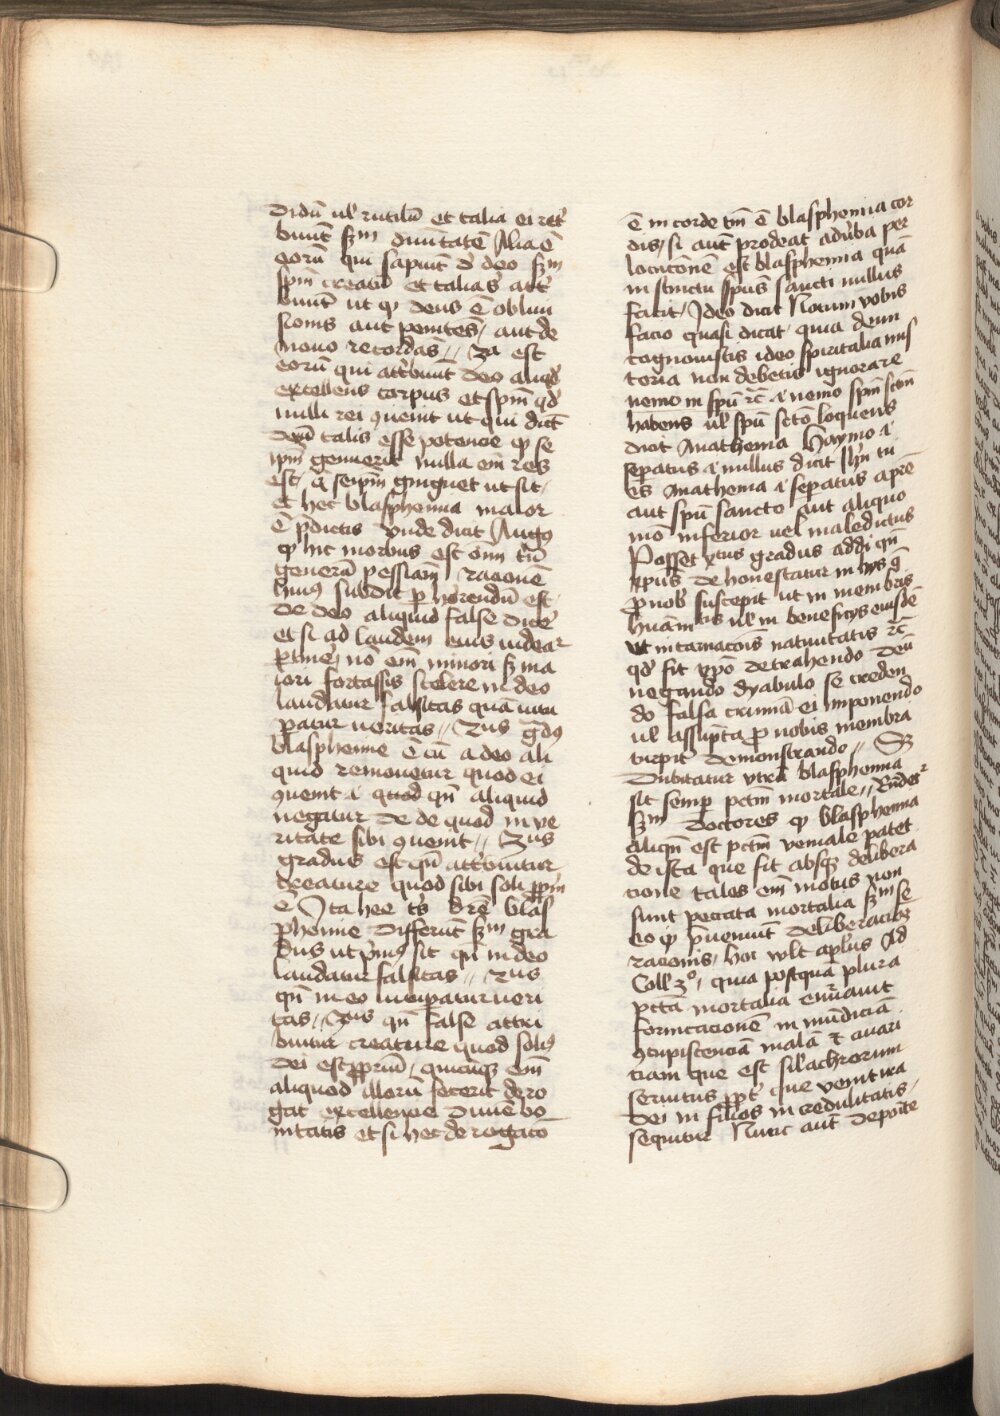 didū ul' rutilū et talia ei ret'
buūt scdm diuītatē Alia ē
eorū qui sapiūt d' deo scdm
spm creatū et talia att'
buūt ut qp deus ē obliui
sionis aut penitēs / aut de
nouo recordās // 3a est
eorū qui attbuūt deo aliqd'
excellens corpus et spm qd'
nulli rei ꝯuenit ut qui dicūt
deū talis esse potencie qp se
ipm genuerit nulla em̄ res
est / q̄ seipm gingnet ut sit /
et hec blasphemia maior
ē pdictis vnde dicit Aug9
qp hic morbus est oīm
generū pessim9 racionē
hui9 subdit p horrendū est
de deo aliquid false dice'
et si ad laudem eius videat'
ptine' / nō em̄ minori sꝫ ma
iori fortassis scelere in deo
laudatur falsitas quā vitu
patur ueritas // 2us gd9
blasphemie ē cū a deo ali
quid remouetur quod ei
ꝯuenit i quod qn̄ aliquid
negatur de de quod in ve
ritate sibi ꝯuenit // 3us
gradus est qn̄ attbuitur
creature quod sibi soli ppm
ē Ita hee t's d're blas
phemie differūt scdm gra
dus ut pm9 sit qn̄ in deo
laudatur falsitas // 2us
qn̄ in eo vitupatur ueri
tas // 3us qn̄ false attri
buitur creature quod soli9
dei est ppriū / quicūqꝫ em̄
aliquod illorū fecerit dero
gat excellencie diuīe bo
nitatis et si hec derogacō
ē in corde tm̄ ē blasphemia cor
dis / si aut prodeat ad v'ba per
locucōnē est blasphemia quā
in stinctu spūs sancti nullus
facit / Ideo dicit Notum vobis
facio quasi dicat quia deum
cognouistis ideo spiritalia mis
teria non debetis ignorare
nemo in spū rc̄ i nemo spm scm
habens ul' spū scto loquens
dicit Anathema Haymo i
seperatus i nullus dicit Ihm tu
es Anathema i seperatus a pre
aut spū sancto aut aliquo
mō inferior uel maledictus
Posset xtus gradus addi qn̄
xpus dehonestatur in hys q̄
p nob' suscepit ut in membris
huāntis ul' in beneficys eiusdē
vt in carnacōis natiuitatis rc̄
qd' fit xpō detrahendo deū
negando dyabulo se creden
do falsa crimīa ei imponendo
ul' assūpta p nobis membra
turpit' demonstrando // Sꝫ
dubitatur vtrū blasphemia
sit semp pctm mortale // Rn̄det'
scdm doctores qp blasphemia
aliqn̄ est pctm veniale patet
de ista que fit absqꝫ delibera
cione tales em̄ motus non
sunt peccata mortalia scdm se
eo qp pueniūt deliberacioēꝫ
racionis / hoc vult aplus Ad
Coll' 3o / quia postquā plura
pctā mortalia enu'auit
fornicacionē in mūdiciā
ꝯcupiscenciā malā et auari
ciam que est sil'achrorum
seruitus ppt' que venit ira
dei in filios in credulitatis /
sequitur Nunc aut deponite